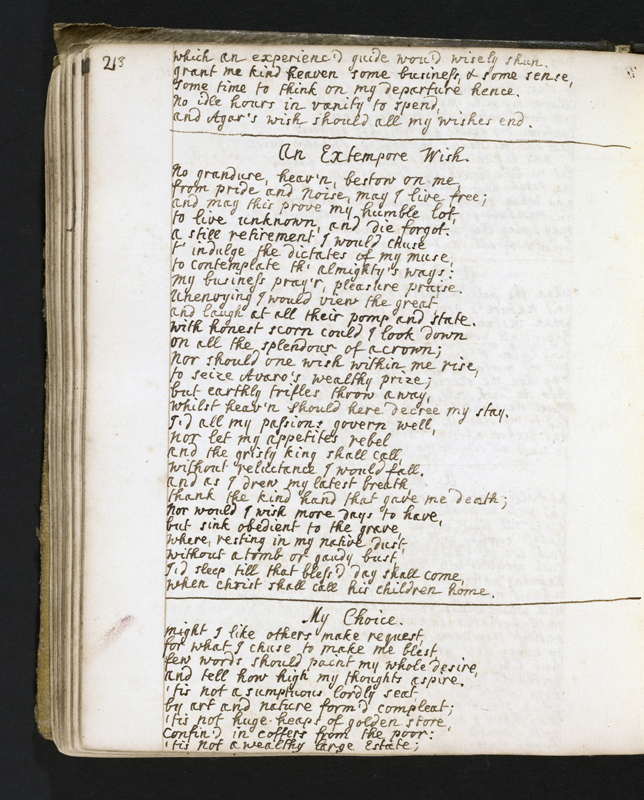 213
which an experienc'd guide wou'd wisely shun.
grant me kind heaven some business, & some sense,
some time to think on my departure hence.
no idle hours in vanity to spend,
and Agar's wish should all my wishes end.
An Extempore Wish.
No grandure, heav'n, bestow on me,
from pride and Noise, may I live free;
and may this prove my humble lot,
to live unknown, and die forgot.
a still retirement I would chuse
t' indulge the dictates of my muse,
to contemplate th' almighty's ways:
my business pray'r, pleasure praise.
Unenvying I would view the great
and laugh at all their pomp and state.
with honest scorn could I look down
on all the splendour of a crown;
nor should one wish within me rise,
to seize Avaro's wealthy prize;
but earthly trifles throw away,
whilst heav'n should here decree my stay.
I'd all my passions govern well,
nor let my appetites rebel
and the gristy king shall call
without reluctance I would fall.
and as I drew my latest breath
thank the kind hand that gave me death;
nor would I wish more days to have,
but sink obedient to the grave,
where, resting in my native dust,
without a tomb or gaudy bust,
I'd sleep till that bless'd day shall come,
when christ shall call his children home.
My Choice.
might I like others make request,
for what I chuse to make me blest
few words should paint my whole desire,
and tell how high my thoughts aspire.
'tis not a sumptuous lordly seat
by art and nature form'd compleat;
'tis not huge heaps of golden store,
Confin'd in coffers from the poor:
'tis not a wealthy large Estate;